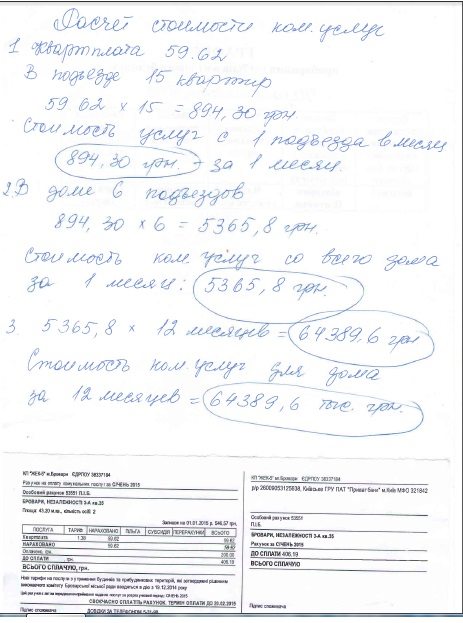 Расчёт стоимости ком. услуг
1 Квартплата 59.62
В подъезде 15 квартир
59 62 × 15 = 894,30 грн.
Стоимость услуг с 1 подъезда в месяц
894,30 грн. - за 1 месяц.
2. В доме 6 подъездов
894,30 × 6 = 5365,8 грн.
Стоимость ком. услуг со всего дома
за 1 месяц: 5365,8 грн.
3. 5365,8 × 12 месяцев = 64389,6 грн
Стоимость ком. услуг для дома
за 12 месяцев = 64389,6 тыс. грн.
КП "ЖЕК-5" м.Бровари ЄДРПОУ 36337184
Рахунок на оплату комунальних послуг за СІЧЕНЬ 2015
Особовий рахунок 53551 П.І.Б.
БРОВАРИ, НЕЗАЛЕЖНОСТІ 3-А кв.35
Площа: 43.20 м.кв., кількість осіб: 2
Заховано на 01.01.2015 р. 546,57 грн.
ПОСЛУГА ТАРИФ НАРАХОВАНО ПІЛЬГА СУБСИДІЯ ПЕРЕРАХУНКИ ВСЬОГО
Квартплата 1.38 59.62 59.62
НАРАХОВАНО 59.62 59.62
Оплачено, грн. 200.00
ДО СПЛАТИ грн. 406.19
ВСЬОГО СПЛАЧУЮ, грн.
Нові тарифи на послуги з утримання будинків та прибудинкових територій, які затверджені рішенням
виконавчого комітету Броварської міської ради вводяться в дію з 19.12.2014 року
СВОЄЧАСНО СПЛАТІТЬ РАХУНОК, ТЕРМІН ОПЛАТИ ДО 20.02.2015
Підпис споживача ДОВІДКИ ЗА ТЕЛЕФОНОМ
КП "ЖЕК-5" м.Бровари ЄДРПОУ 36337184
р/р 26009053125638, Київське ГРУ ПАТ "Приват банк" м.Київ МФО 321842
Особовий рахунок 53551
П.І.Б.
БРОВАРИ, НЕЗАЛЕЖНОСТІ 3-А кв.35
Рахунок за СІЧЕНЬ 2015
ДО СПЛАТИ 406.19
ВСЬОГО СПЛАЧУЮ
Підпис споживача